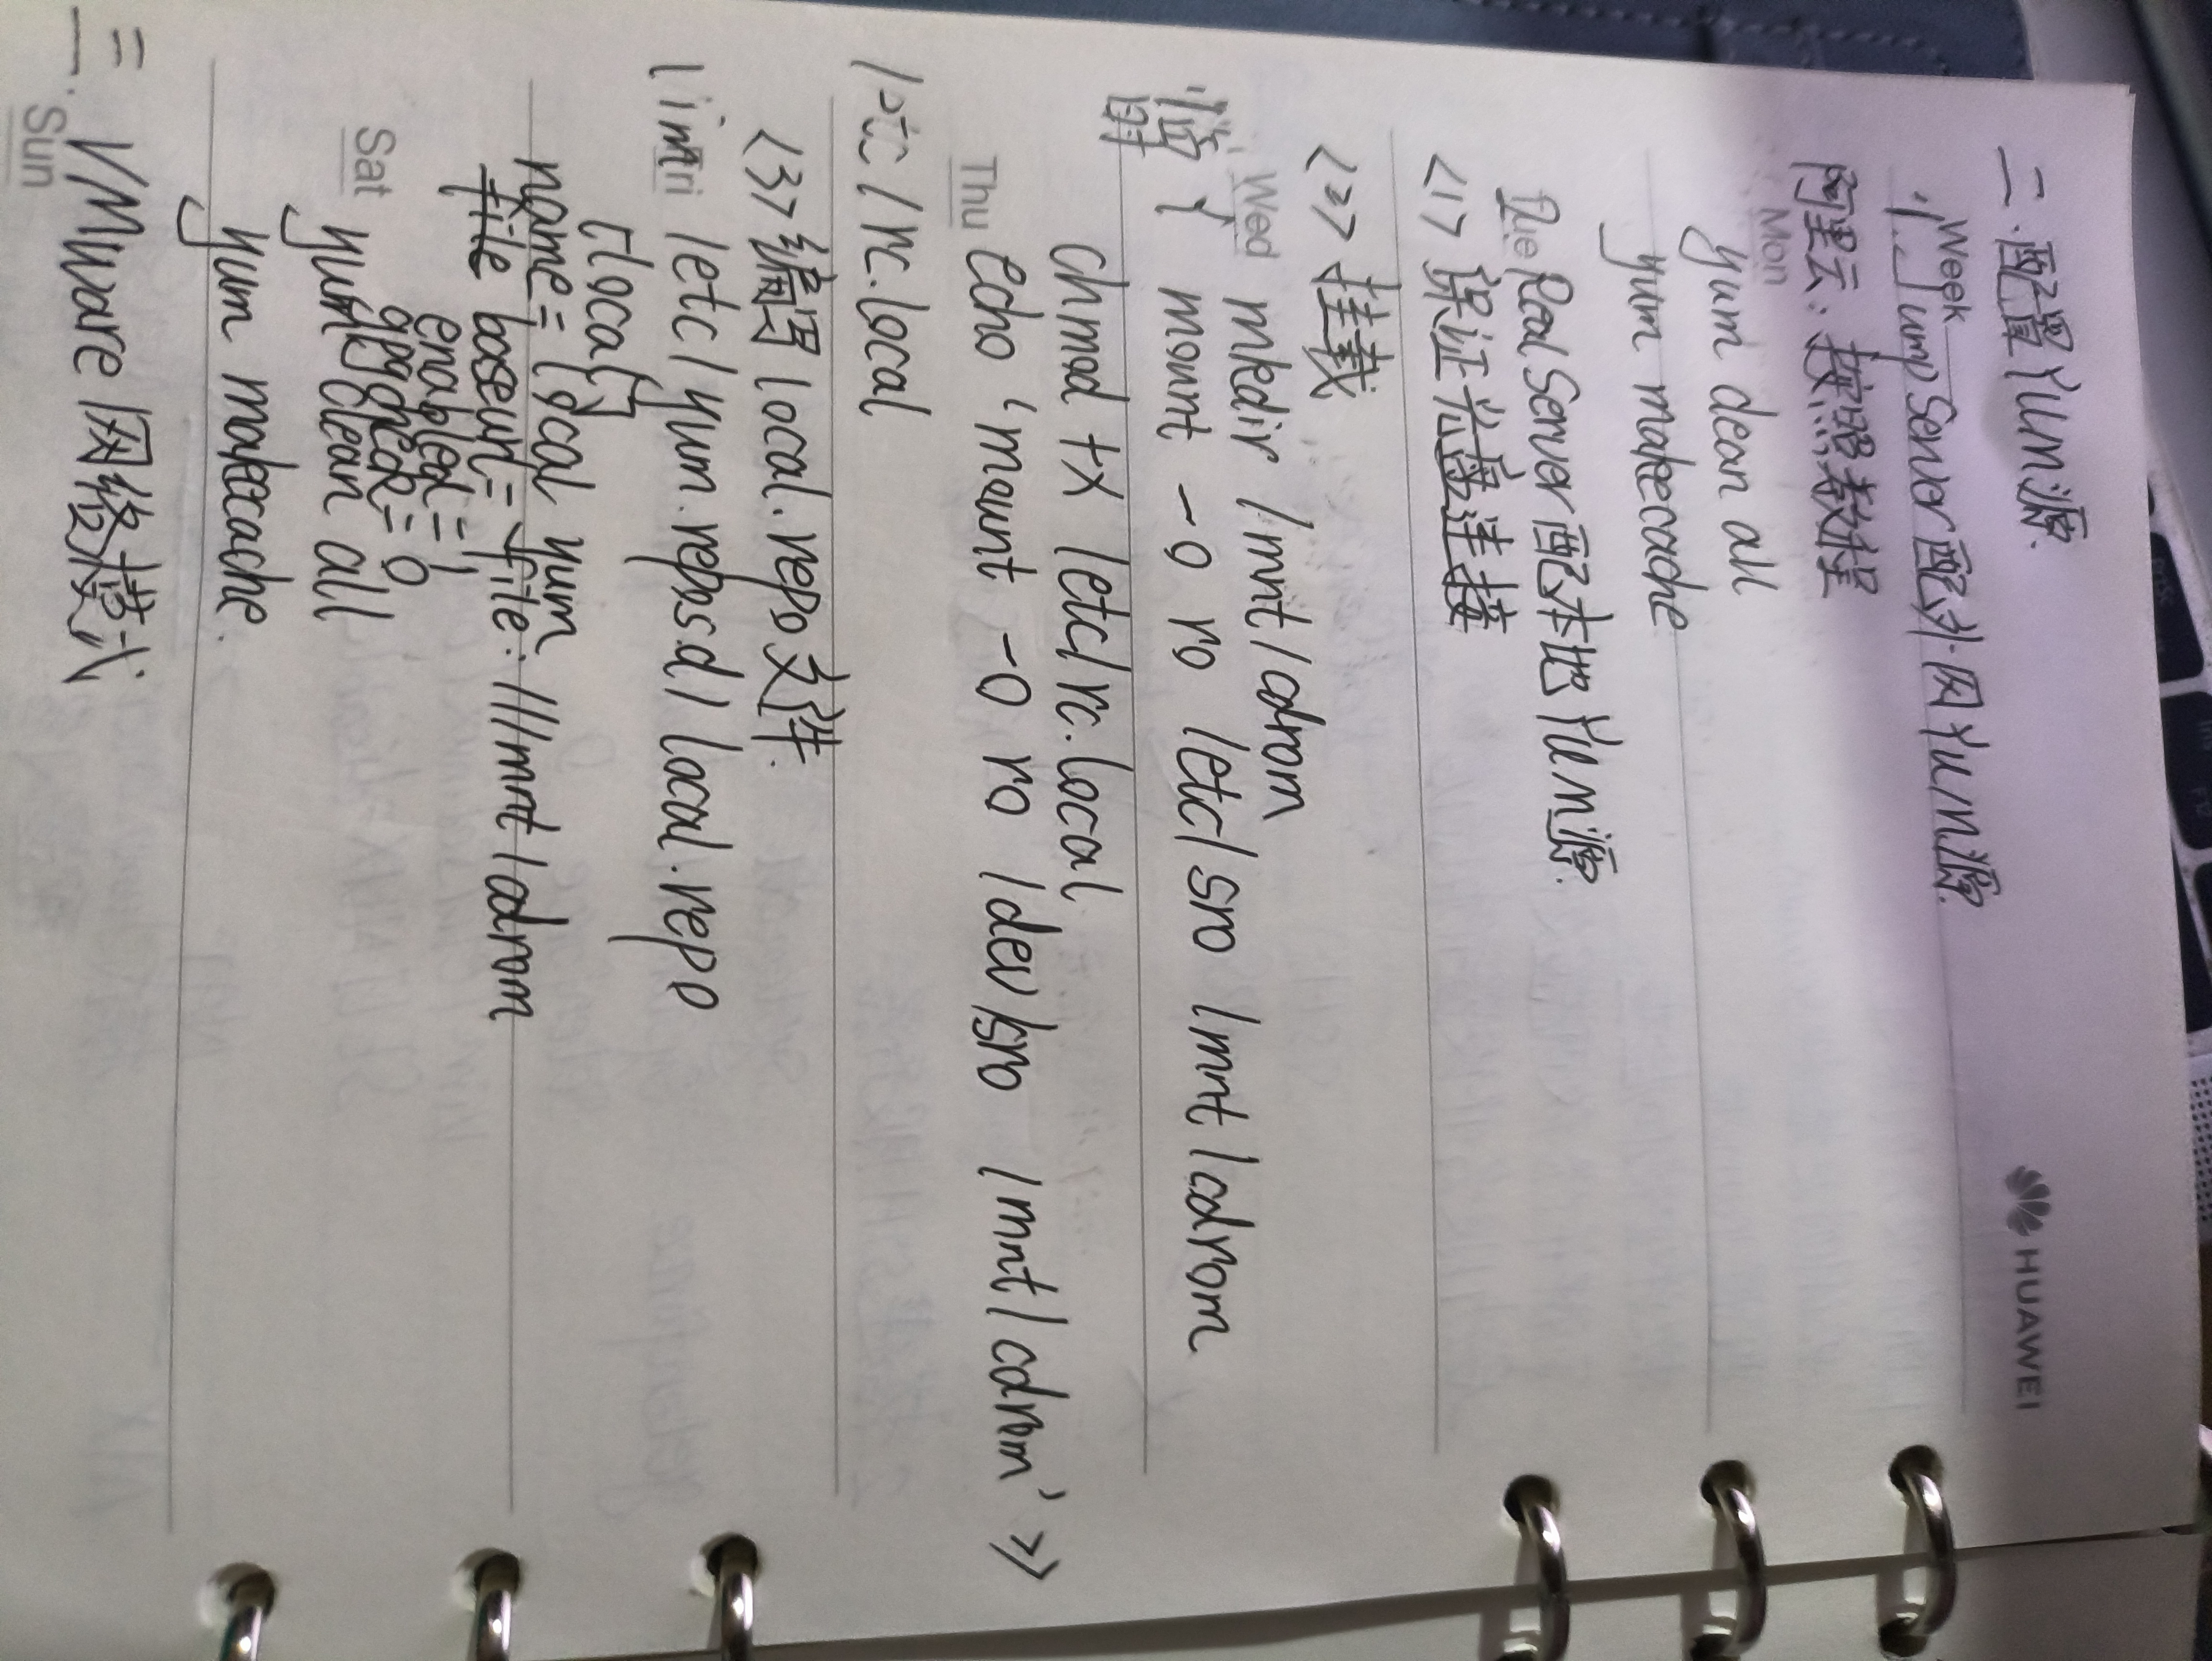 HUAWEI
二.配置Yum源.
Week
1. JumpServer配外网Yum源.
阿里云:按照教程
Mon
yum clean all
yum makecache
Tue
2. RealServer配本地Yum源.
<1> 保证光盘连接
<2> 挂载
Wed
mkdir /mnt/cdrom
临时 { mount -o ro /etc/sr0 /mnt/cdrom
chmod +x /etc/rc.local
Thu
echo 'mount -o ro /dev/sr0 /mnt/cdrom' >>
/etc/rc.local
<3>编写local.repo文件.
Fri
vim /etc/yum.repos.d/local.repo
[local]
name=local yum
baseurl=file:///mnt/cdrom
enabled=1
gpgcheck=0
Sat
yum clean all
yum makecache.
三. VMware网络模式
Sun